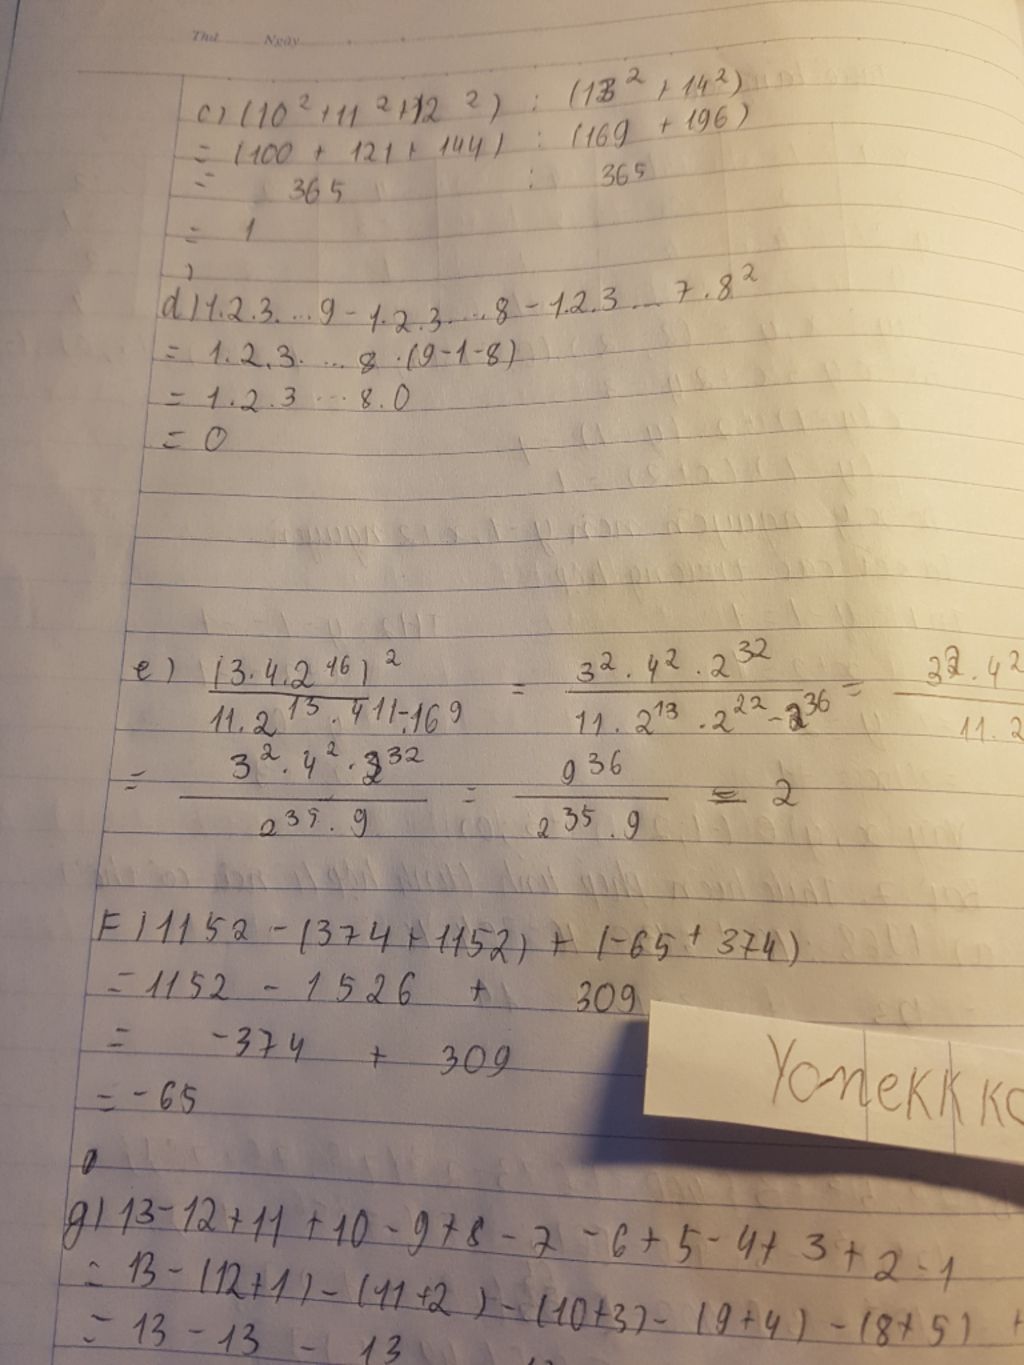 Thứ Ngày
c) (10² + 11² + 12²) : (13² + 14²)
= (100 + 121 + 144) : (169 + 196)
= 365 : 365
= 1
d) 1.2.3. ... 9 - 1.2.3. ... 8 - 1.2.3 ... 7.8²
= 1.2.3. ... 8 . (9-1-8)
= 1.2.3 ... 8.0
= 0
e) (3.4.2¹⁶)² / 11.2¹³.4¹¹-16⁹ = 3².4².2³² / 11.2¹³.2²²-2³⁶ = 3².4² / 11.2
= 3².4².2³² / 2³⁵.9 = 9³⁶ / 2³⁵.9 = 2
F) 1152 - (374 + 1152) + (-65 + 374)
= 1152 - 1526 + 309
= -374 + 309
= -65
YomeKK
g) 13-12+11+10-9+8-7-6+5-4+3+2-1
= 13-(12+1)-(11+2)-(10+3)-(9+4)-(8+5)+
= 13 - 13 - 13